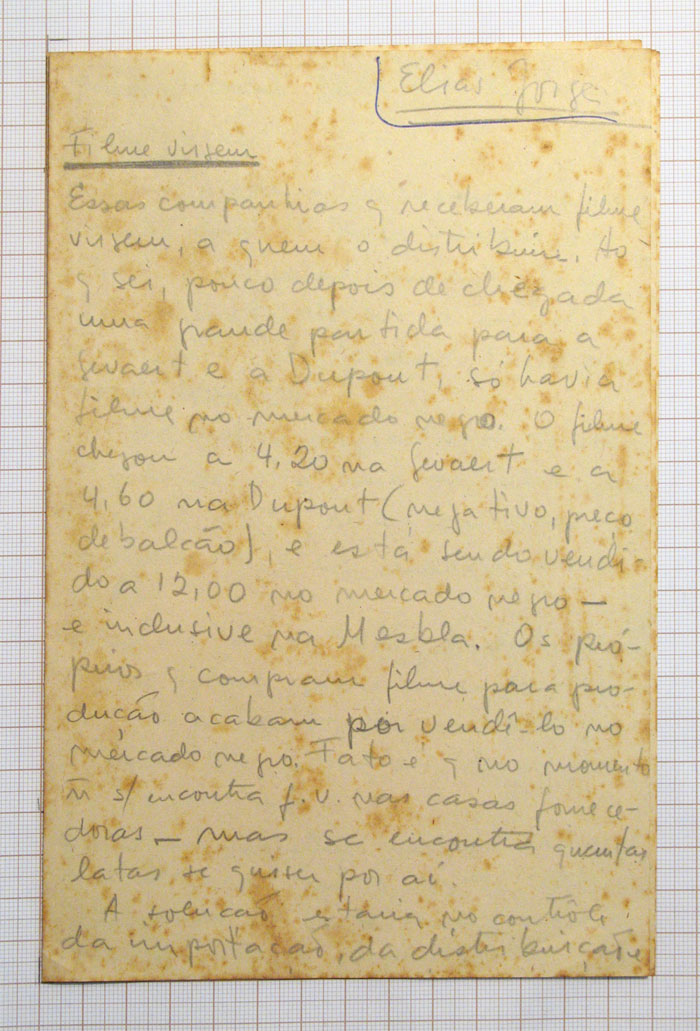 Elias Jorge
Filme virgem
Essas companhias q receberam filme
virgem, a quem o distribuem. Ao
q sei, pouco depois de chegada
uma grande partida para a
Gevaert e a Dupont, só havia
filme no mercado negro. O filme
chegou a 4,20 na Gevaert e a
4,60 na Dupont (negativo, preço
de balcão), e está sendo vendi-
do a 12,00 no mercado negro —
e inclusive na Mesbla. Os pró-
prios q compram filme para pro-
dução acabam por vendê-lo no
mercado negro. Fato é q no momento
ñ s/ encontra f. v. nas casas fornece-
doras — mas se encontra quantas
latas se quiser por aí.
A solução estaria no contrôle
da importação, da distribuição e